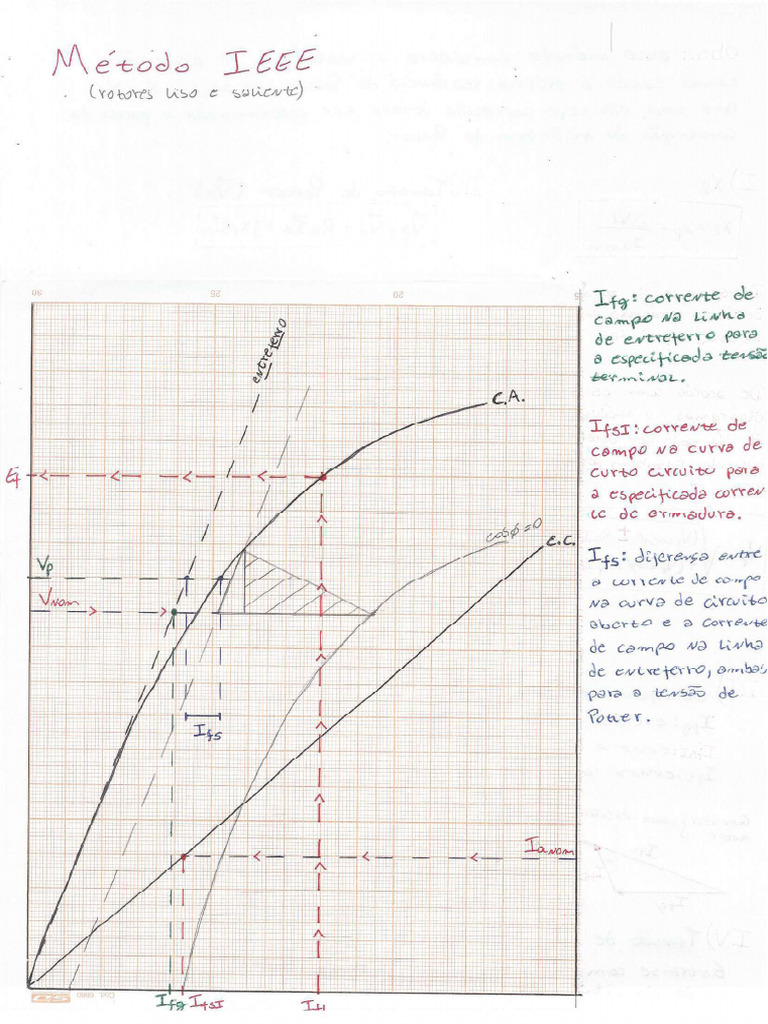 Método IEEE
(rotores liso e saliente)
30
25
20
Ifg: corrente de
campo na linha
de entreferro para
a especificada tensão
terminal.
entreferro
C.A.
IfsI: corrente de
campo na curva de
curto circuito para
a especificada corren
te de armadura.
Ef
cosϕ=0
C.C.
Ifs: diferença entre
a corrente de campo
na curva de circuito
aberto e a corrente
de campo na linha
de entreferro, ambas
para a tensão de
Potier.
Vp
Vnom
Ifs
Ianom
Ifg IfsI